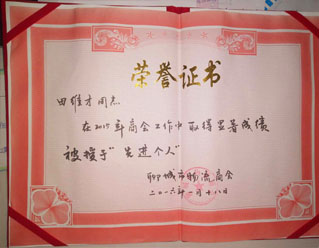 荣誉证书
田维才同志
在2015年商会工作中取得显著成绩
被授于"先进个人"
聊城市物流商会
二〇一六年一月十八日